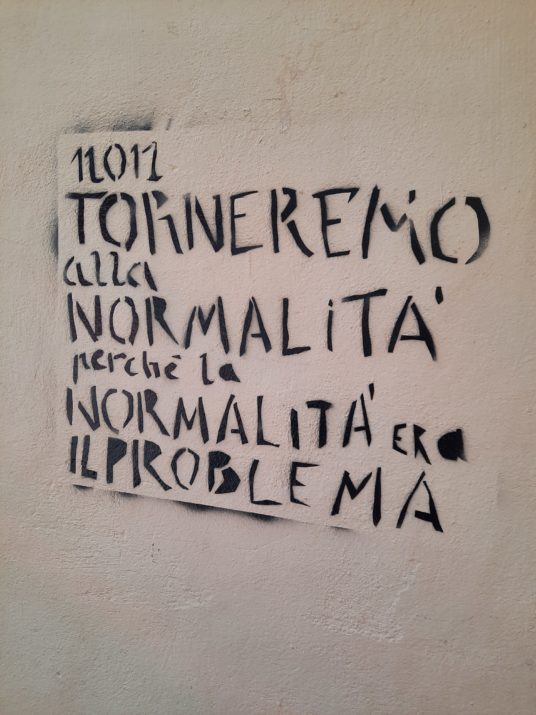 non
TORNEREMO
alla
NORMALITA'
perchè la
NORMALITA' ERa
IL PROBLEMA